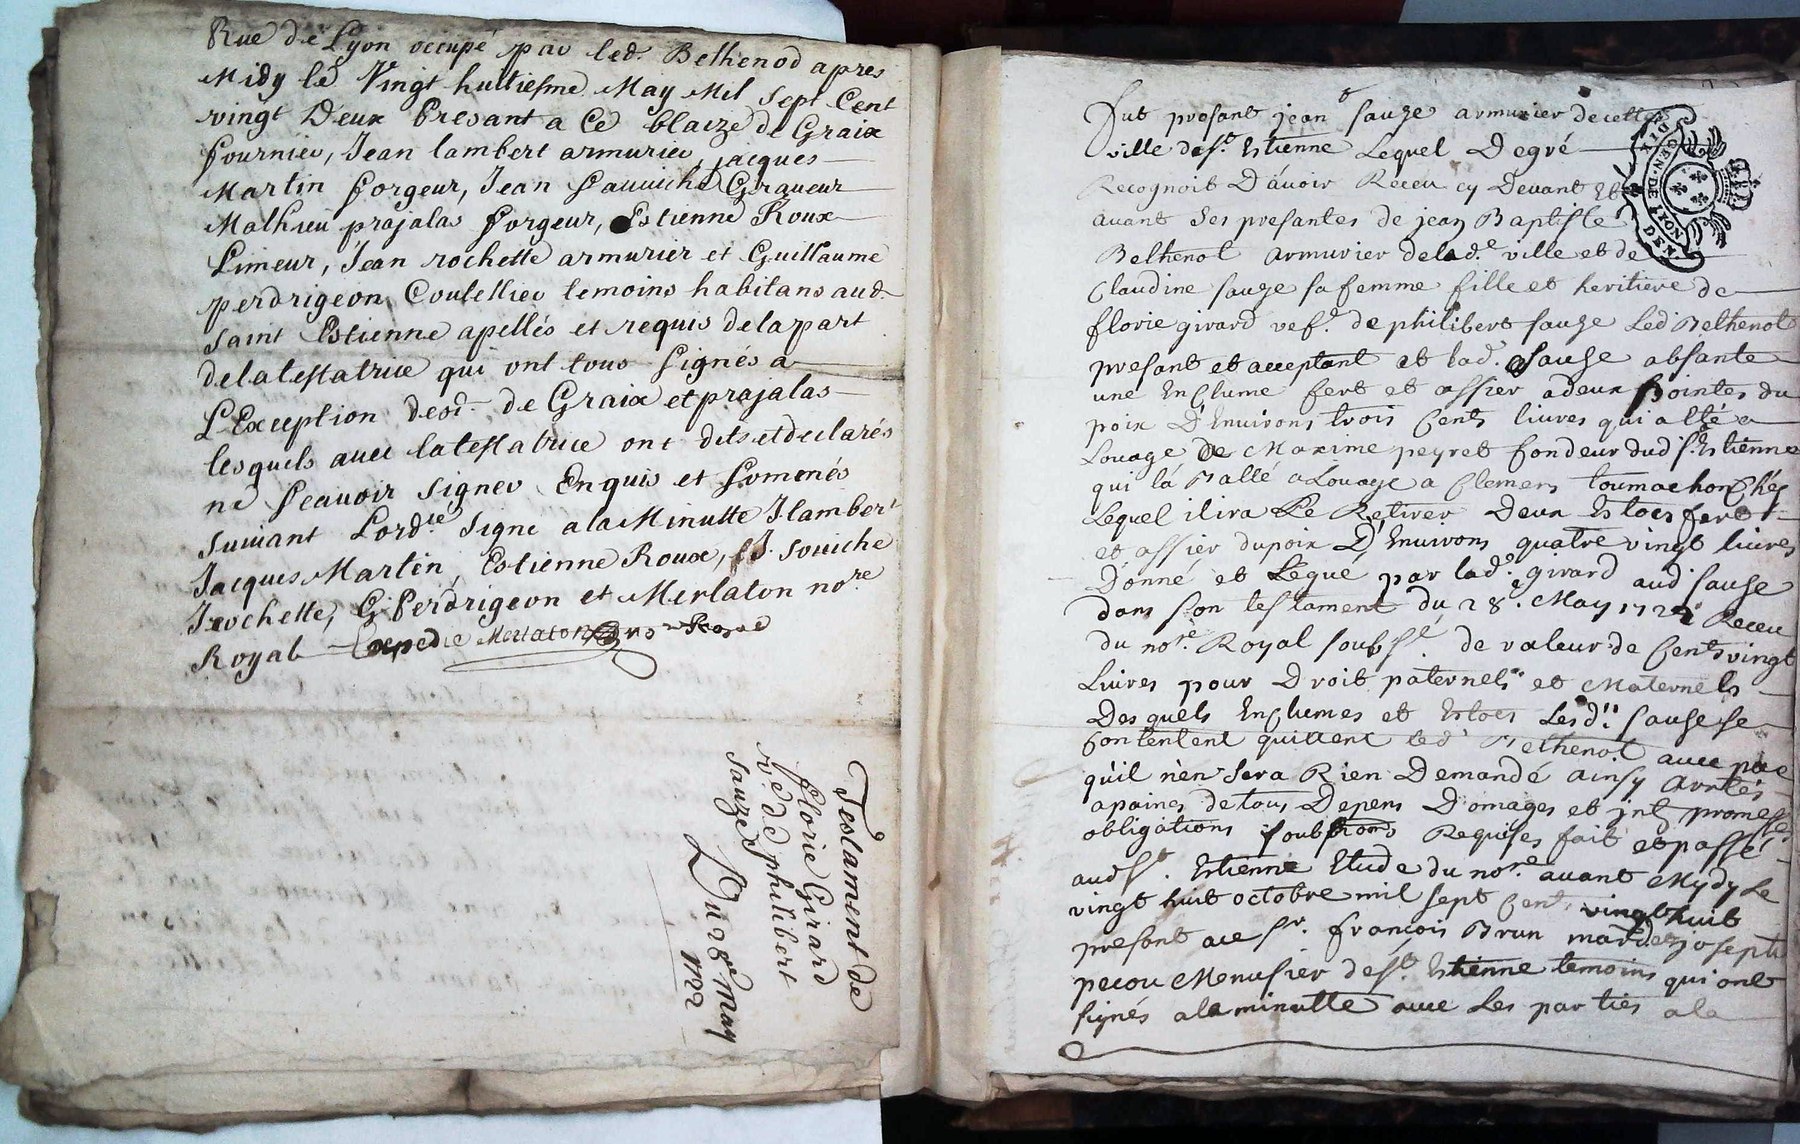 Rue de Lyon occupé par led. Bethenod apres
Midy le Vingt huitiesme May Mil Sept Cent
vingt Deux Presant a Ce blaize de Graix
fournier, Jean lambert armurier, jacques
Martin forgeur, Jean Sauviche Graveur
Mathieu prajalas forgeur, Estienne Roux
Limeur, Jean rochette armurier et Guillaume
perdrigeon Coutellier temoins habitans aud.
Saint Estienne apellés et requis de la part
de la testatrice qui ont tous Signés a
L'Exception desd. de Graix et prajalas
lesquels avec la testatrice ont dits et declarés
ne Scavoir signer Enquis et Somenés
suivant Lord.ce Signé a la Minutte J lambert
Jacques Martin, Estienne Roux, J. souiche
J rochette, G Perdrigeon et Merlaton no.re
Royal Expedie Merlaton
Testament de
florie Girard
v.e de philibert
sauze
Du 28e May
1722
Fut presant jean sauze armurier de cette
ville de St. Estienne Lequel De gré
Recognoit D'avoir Receu cy Devant Et
avant Ses presantes de jean Baptiste
Bethenot armurier de lad.e ville et de
Claudine sauze sa femme fille et heritiere de
florie girard vef.e de philibert sauze Led Bethenot
presant et acceptant et lad. Sauze absante
une Enclume fert et assier a deux pointes du
poix D'Environs trois Cents livres qui a été a
Louage De Maxime peyret fondeur dud St. Estienne
qui l'a Ballé a Louage a Clemens toumachon Chés
Lequel il ira Le Retirer Deux Estocs fert
et assier du poix D'Environs quatre vingt livres
Donné et Legué par lad.e girard aud sauze
dans son testament du 28. May 1722 Receu
du no.re Royal soubs.é de valeur de Cents vingt
Livres pour Droit paternels et Maternels
Desquels Enclumes et Estocs Lesd.ts sauze se
Contentent quittent led Bethenot avec pac
qu'il n'en Sera Rien Demandé Ainsy
apaines de tous Depens Domages et jnts promesse
obligations Requises fait et passé
aud St. Estienne Etude du no.re avant Mydy Le
vingt huit octobre mil sept Cents vingt huit
presant ace Sr. françois Brun joseph
pecou Menusier de St. Estienne temoins qui ont
signés a la minutte avec Les parties a la